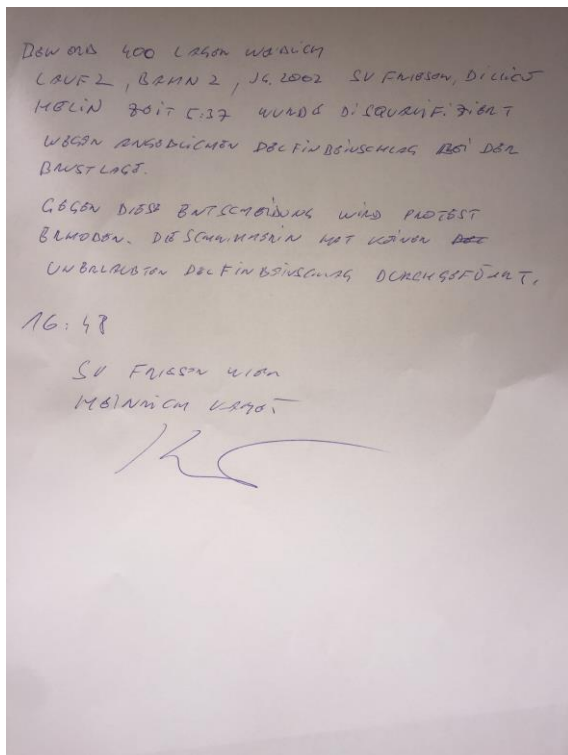 BEWERB 400 LAGEN WEIBLICH
LAUF 2, BAHN 2, JG. 2002 SV FRIESEN,
HELIN ZEIT 5:37 WURDE DISQUALIFIZIERT
WEGEN ANGEBLICHEN DELFINBEINSCHLAG BEI DER
BRUSTLAGE.
GEGEN DIESE ENTSCHEIDUNG WIRD PROTEST
ERHOBEN. DIE SCHWIMMERIN HAT KEINEN
UNERLAUBTEN DELFINBEINSCHLAG DURCHGEFÜHRT.
16:48
SV FRIESEN WIEN
HEINRICH